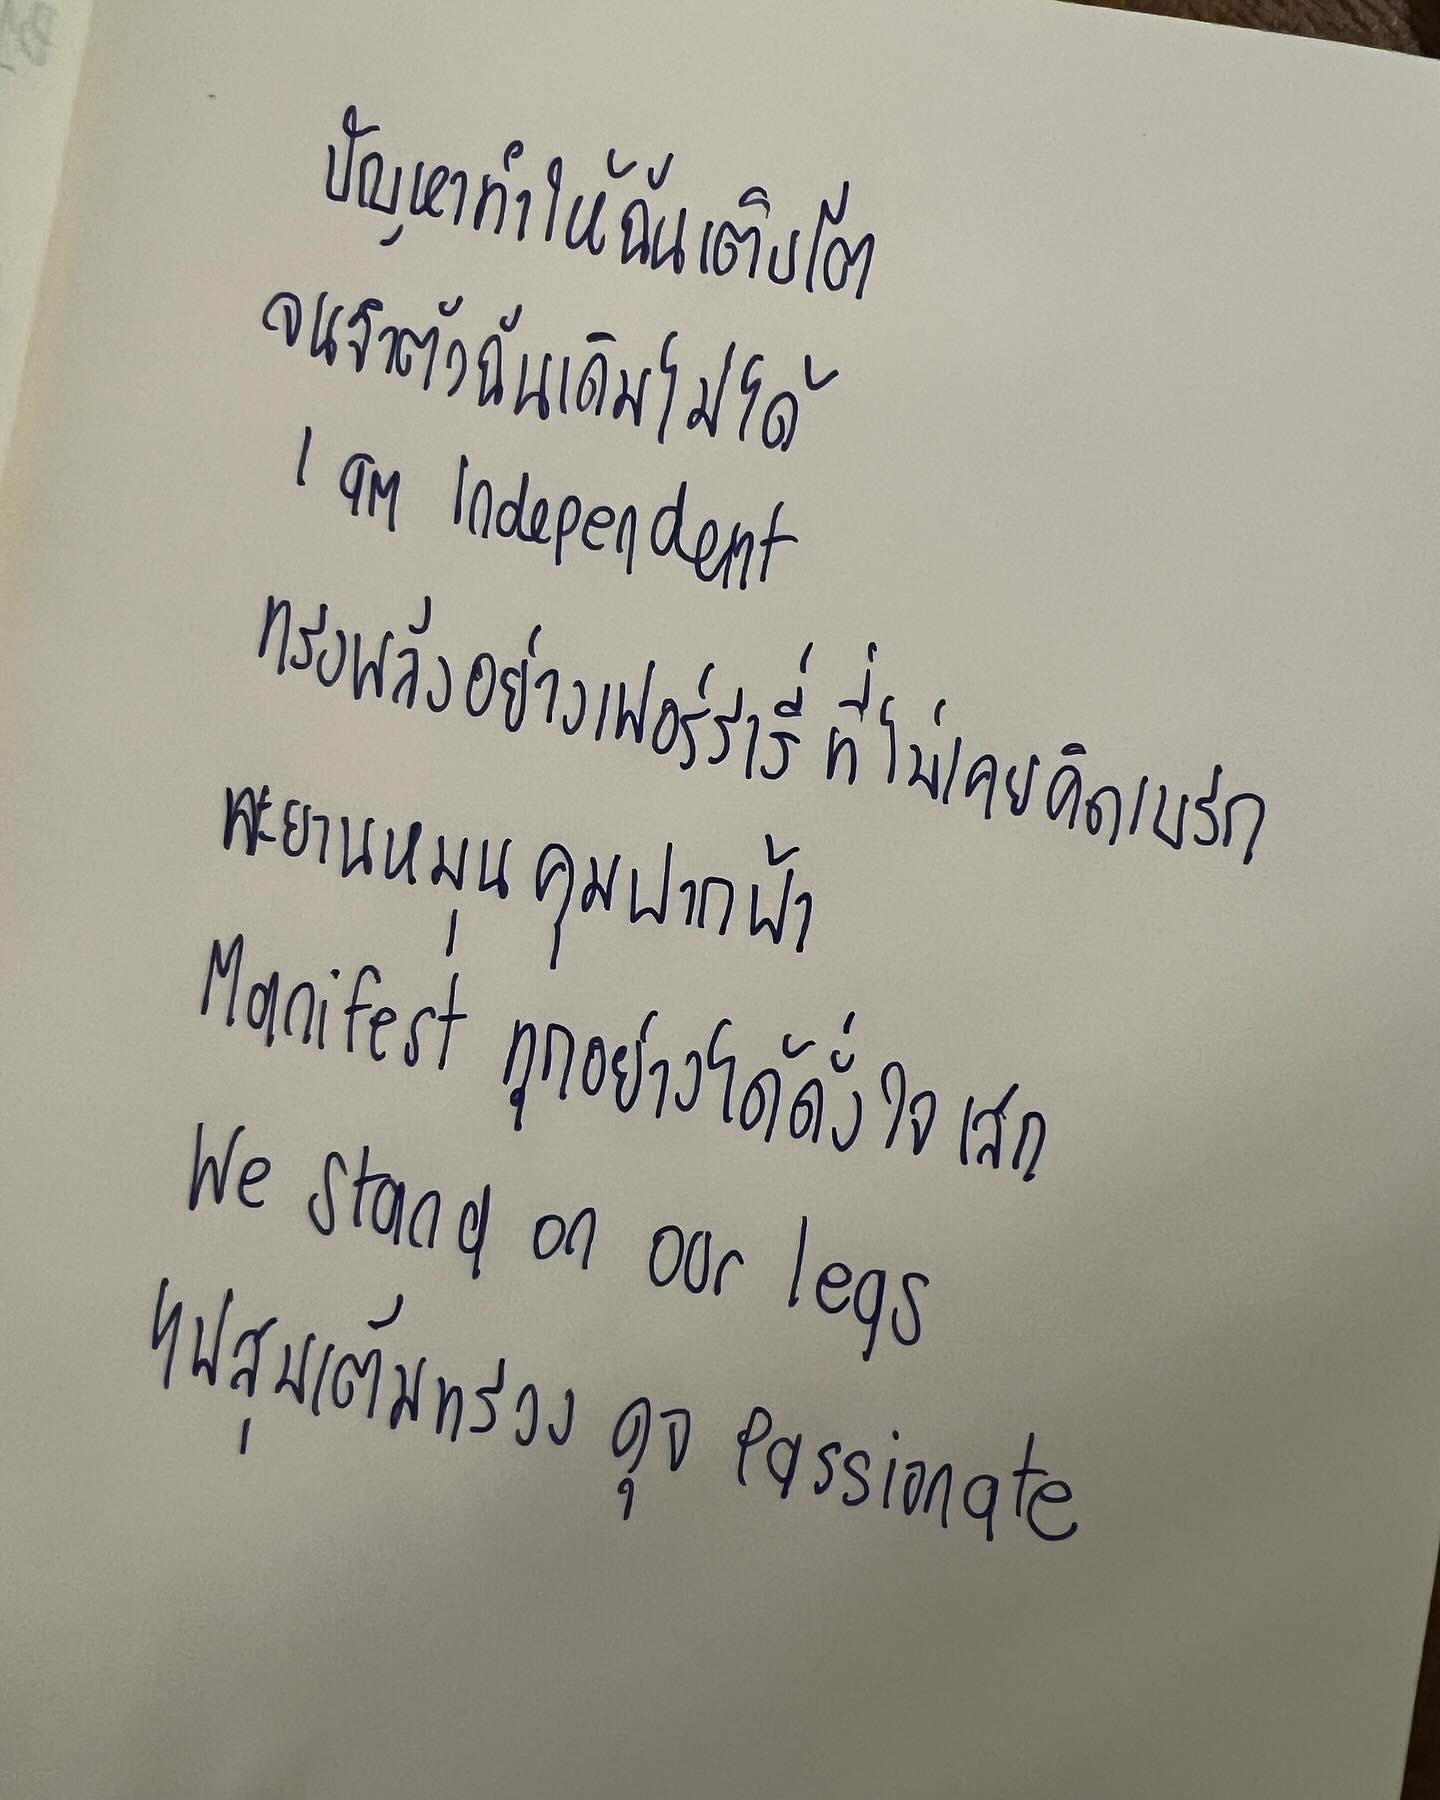 ปัญหาทำให้ฉันเติบโต
จนจำตัวฉันเดิมไม่ได้
I am Independent
ทรงพลังอย่างเฟอร์รารี่ ที่ไม่เคยคิดเบรก
ทะยานหมุน คุมฟากฟ้า
Manifest ทุกอย่างได้ดั่งใจ เสก
We stand on our legs
ไฟสุมเต็มทรวง ดุจ Passionate